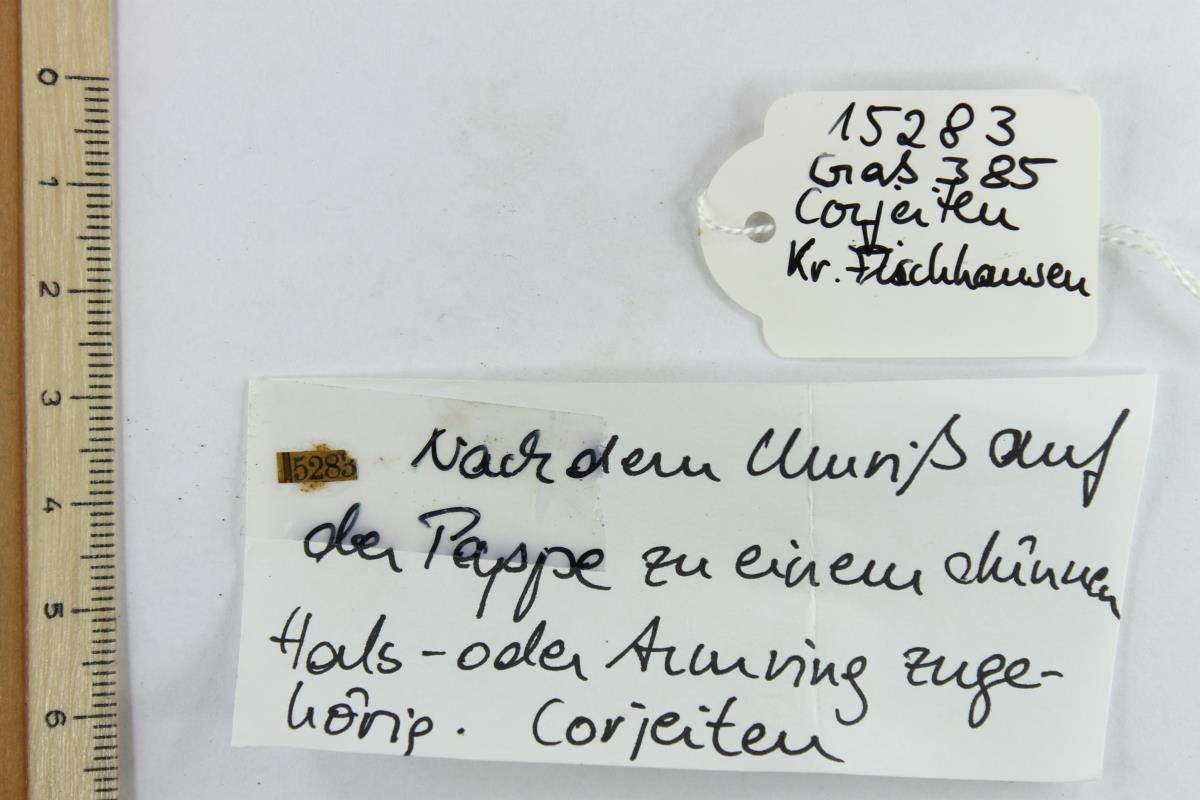 0
1
2
3
4
5
6
15283
Grab 385
Corjeiten
Kr. Fischhausen
15283
Nach dem Umriß auf
der Pappe zu einem dünnen
Hals- oder Armring zuge-
hörig. Corjeiten